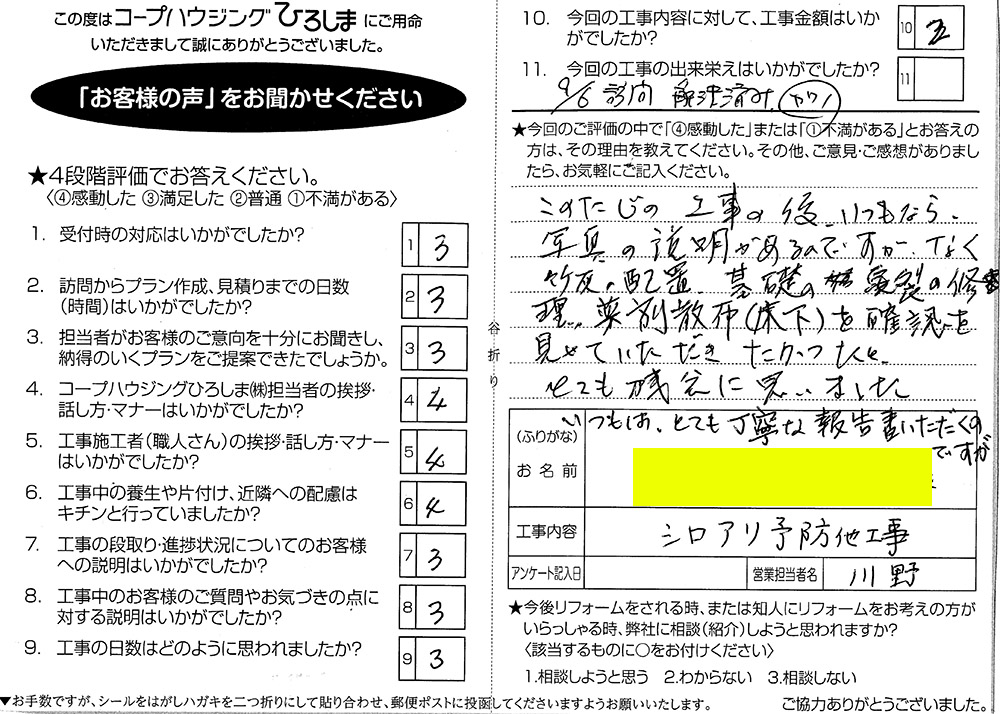 この度は コープハウジングひろしま にご用命
いただきまして誠にありがとうございました。
「お客様の声」をお聞かせください
★4段階評価でお答えください。
〈④感動した ③満足した ②普通 ①不満がある〉
1. 受付時の対応はいかがでしたか？
1 3
2. 訪問からプラン作成、見積りまでの日数
（時間）はいかがでしたか？
2 3
3. 担当者がお客様のご意向を十分にお聞きし、
納得のいくプランをご提案できたでしょうか。
3 3
4. コープハウジングひろしま㈱担当者の挨拶・
話し方・マナーはいかがでしたか？
4 4
5. 工事施工者（職人さん）の挨拶・話し方・マナー
はいかがでしたか？
5 4
6. 工事中の養生や片付け、近隣への配慮は
キチンと行っていましたか？
6 4
7. 工事の段取り・進捗状況についてのお客様
への説明はいかがでしたか？
7 3
8. 工事中のお客様のご質問やお気づきの点に
対する説明はいかがでしたか？
8 3
9. 工事の日数はどのように思われましたか？
9 3
▼お手数ですが、シールをはがしハガキを二つ折りにして貼り合わせ、郵便ポストに投函してくださいますようお願いいたします。
谷折り
10. 今回の工事内容に対して、工事金額はいか
がでしたか？
10
11. 今回の工事の出来栄えはいかがでしたか？
11
9/6 訪問 解決済み カワノ
★今回のご評価の中で「④感動した」または「①不満がある」とお答えの
方は、その理由を教えてください。その他、ご意見・ご感想がありまし
たら、お気軽にご記入ください。
このたびの 工事の後、いつもなら、
写真の説明があるのですが、なく
配置、基礎の 亀裂の修
理、薬剤散布（床下）を確認を
見せていただきたかったなと、
とても残念に思いました
いつもは、とても丁寧な報告書いただくの
ですが
（ふりがな）
お名前
様
工事内容
シロアリ予防他工事
アンケート記入日
営業担当者名
川野
★今後リフォームをされる時、または知人にリフォームをお考えの方が
いらっしゃる時、弊社に相談（紹介）しようと思われますか？
〈該当するものに○をお付けください〉
1.相談しようと思う 2.わからない 3.相談しない
ご協力ありがとうございました。